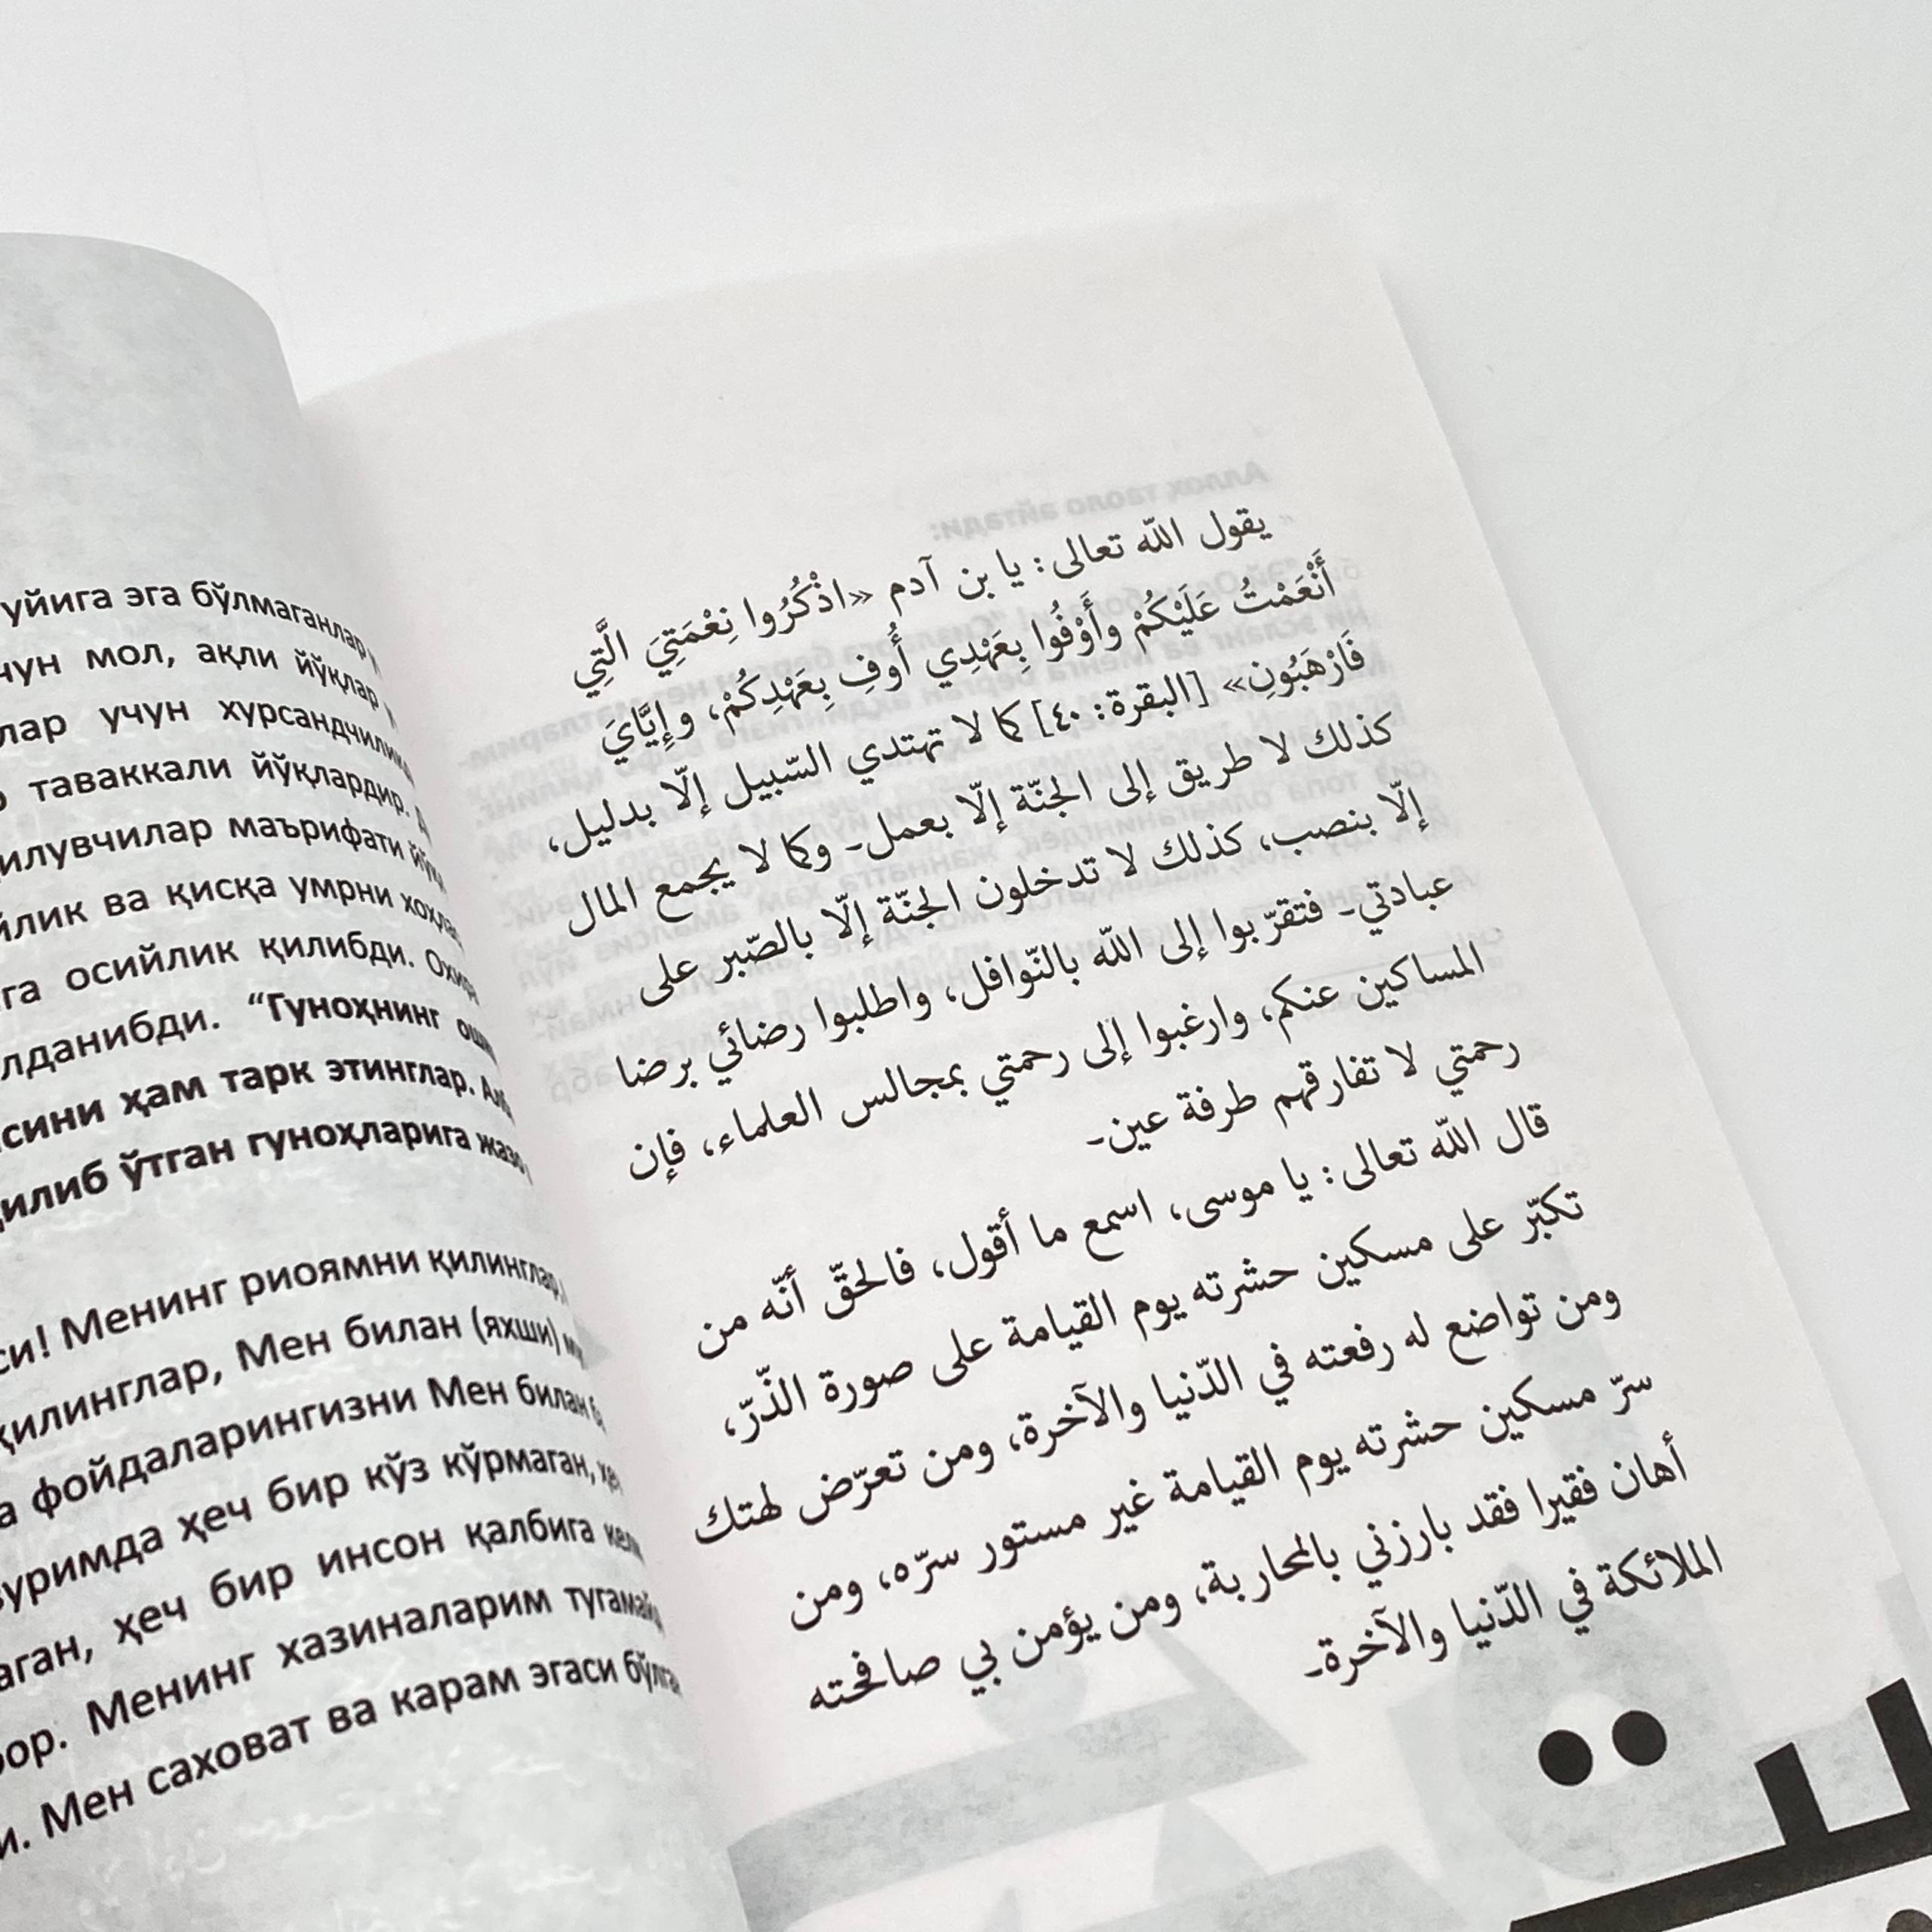 уйига эга бўлмаганлар
чун мол, ақли йўқлар
лар учун хурсандчилик
таваккали йўқлардир.
илувчилар маърифати йўқ
йлик ва қисқа умрни хоҳла
га осийлик қилибди. Охир
лданибди. “Гуноҳнинг
сини ҳам тарк этинглар.
қилиб ўтган гуноҳларига жазо
си! Менинг риоямни қилинглар,
қилинглар, Мен билан (яхши)
а фойдаларингизни Мен билан
зуримда ҳеч бир кўз кўрмаган,
аган, ҳеч бир инсон қалбига
бор. Менинг хазиналарим тугамай
и. Мен саховат ва карам эгаси бўлга
يقول الله تعالى: يا بن آدم «اذْكُرُوا نِعْمَتِيَ الَّتِي
أَنْعَمْتُ عَلَيْكُمْ وأَوْفُوا بِعَهْدِي أُوفِ بِعَهْدِكُمْ، وإِيَّايَ
فَارْهَبُونِ» [البقرة: ٤٠] كما لا تهتدي السّبيل إلّا بدليل،
كذلك لا طريق إلى الجنّة إلّا بعمل۔ وكما لا يجمع المال
إلّا بنصب، كذلك لا تدخلون الجنّة إلّا بالصّبر على
عبادتي۔ فتقرّبوا إلى الله بالنّوافل، واطلبوا رضائي برضا
المساكين عنكم، وارغبوا إلى رحمتي بمجالس العلماء، فإن
رحمتي لا تفارقهم طرفة عين۔
قال الله تعالى: يا موسى، اسمع ما أقول، فالحقّ أنّه من
تكبّر على مسكين حشرته يوم القيامة على صورة الذّرّ،
ومن تواضع له رفعته في الدّنيا والآخرة، ومن تعرّض لهتك
سرّ مسكين حشرته يوم القيامة غير مستور سرّه، ومن
أهان فقيرا فقد بارزني بالمحاربة، ومن يؤمن بي صافحته
الملائكة في الدّنيا والآخرة۔